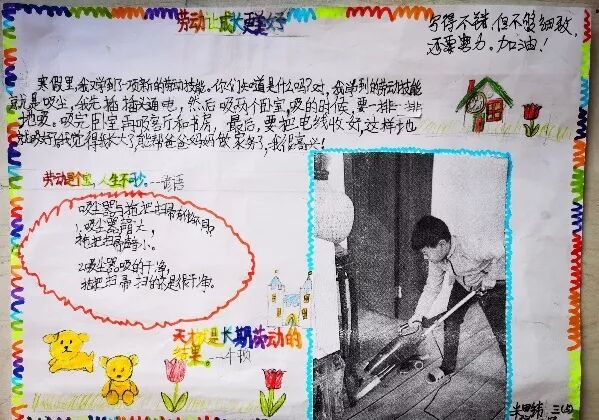 劳动让成长更美好
写得不错,但不够细致,
还要努力。加油!
寒假里,我又学到了一项新的劳动技能。你们知道是什么吗?对,我学到的劳动技能
就是吸尘,我先插插头通电,然后吸两个卧室,吸的时候,要一排一排
地吸。吸完卧室再吸客厅和书房。最后,要把电线收好,这样地
就吸好了。我觉得我长大了,能帮爸爸妈妈做家务了,我很高兴!
劳动是个宝,人生不可少。——谚语
吸尘器与拖把扫帚的不同
1.吸尘器声音大,
拖把扫帚声音小。
2.吸尘器吸的干净,
拖把扫帚扫的不是很干净。
天才就是长期劳动的
结果。——牛顿
三(5)